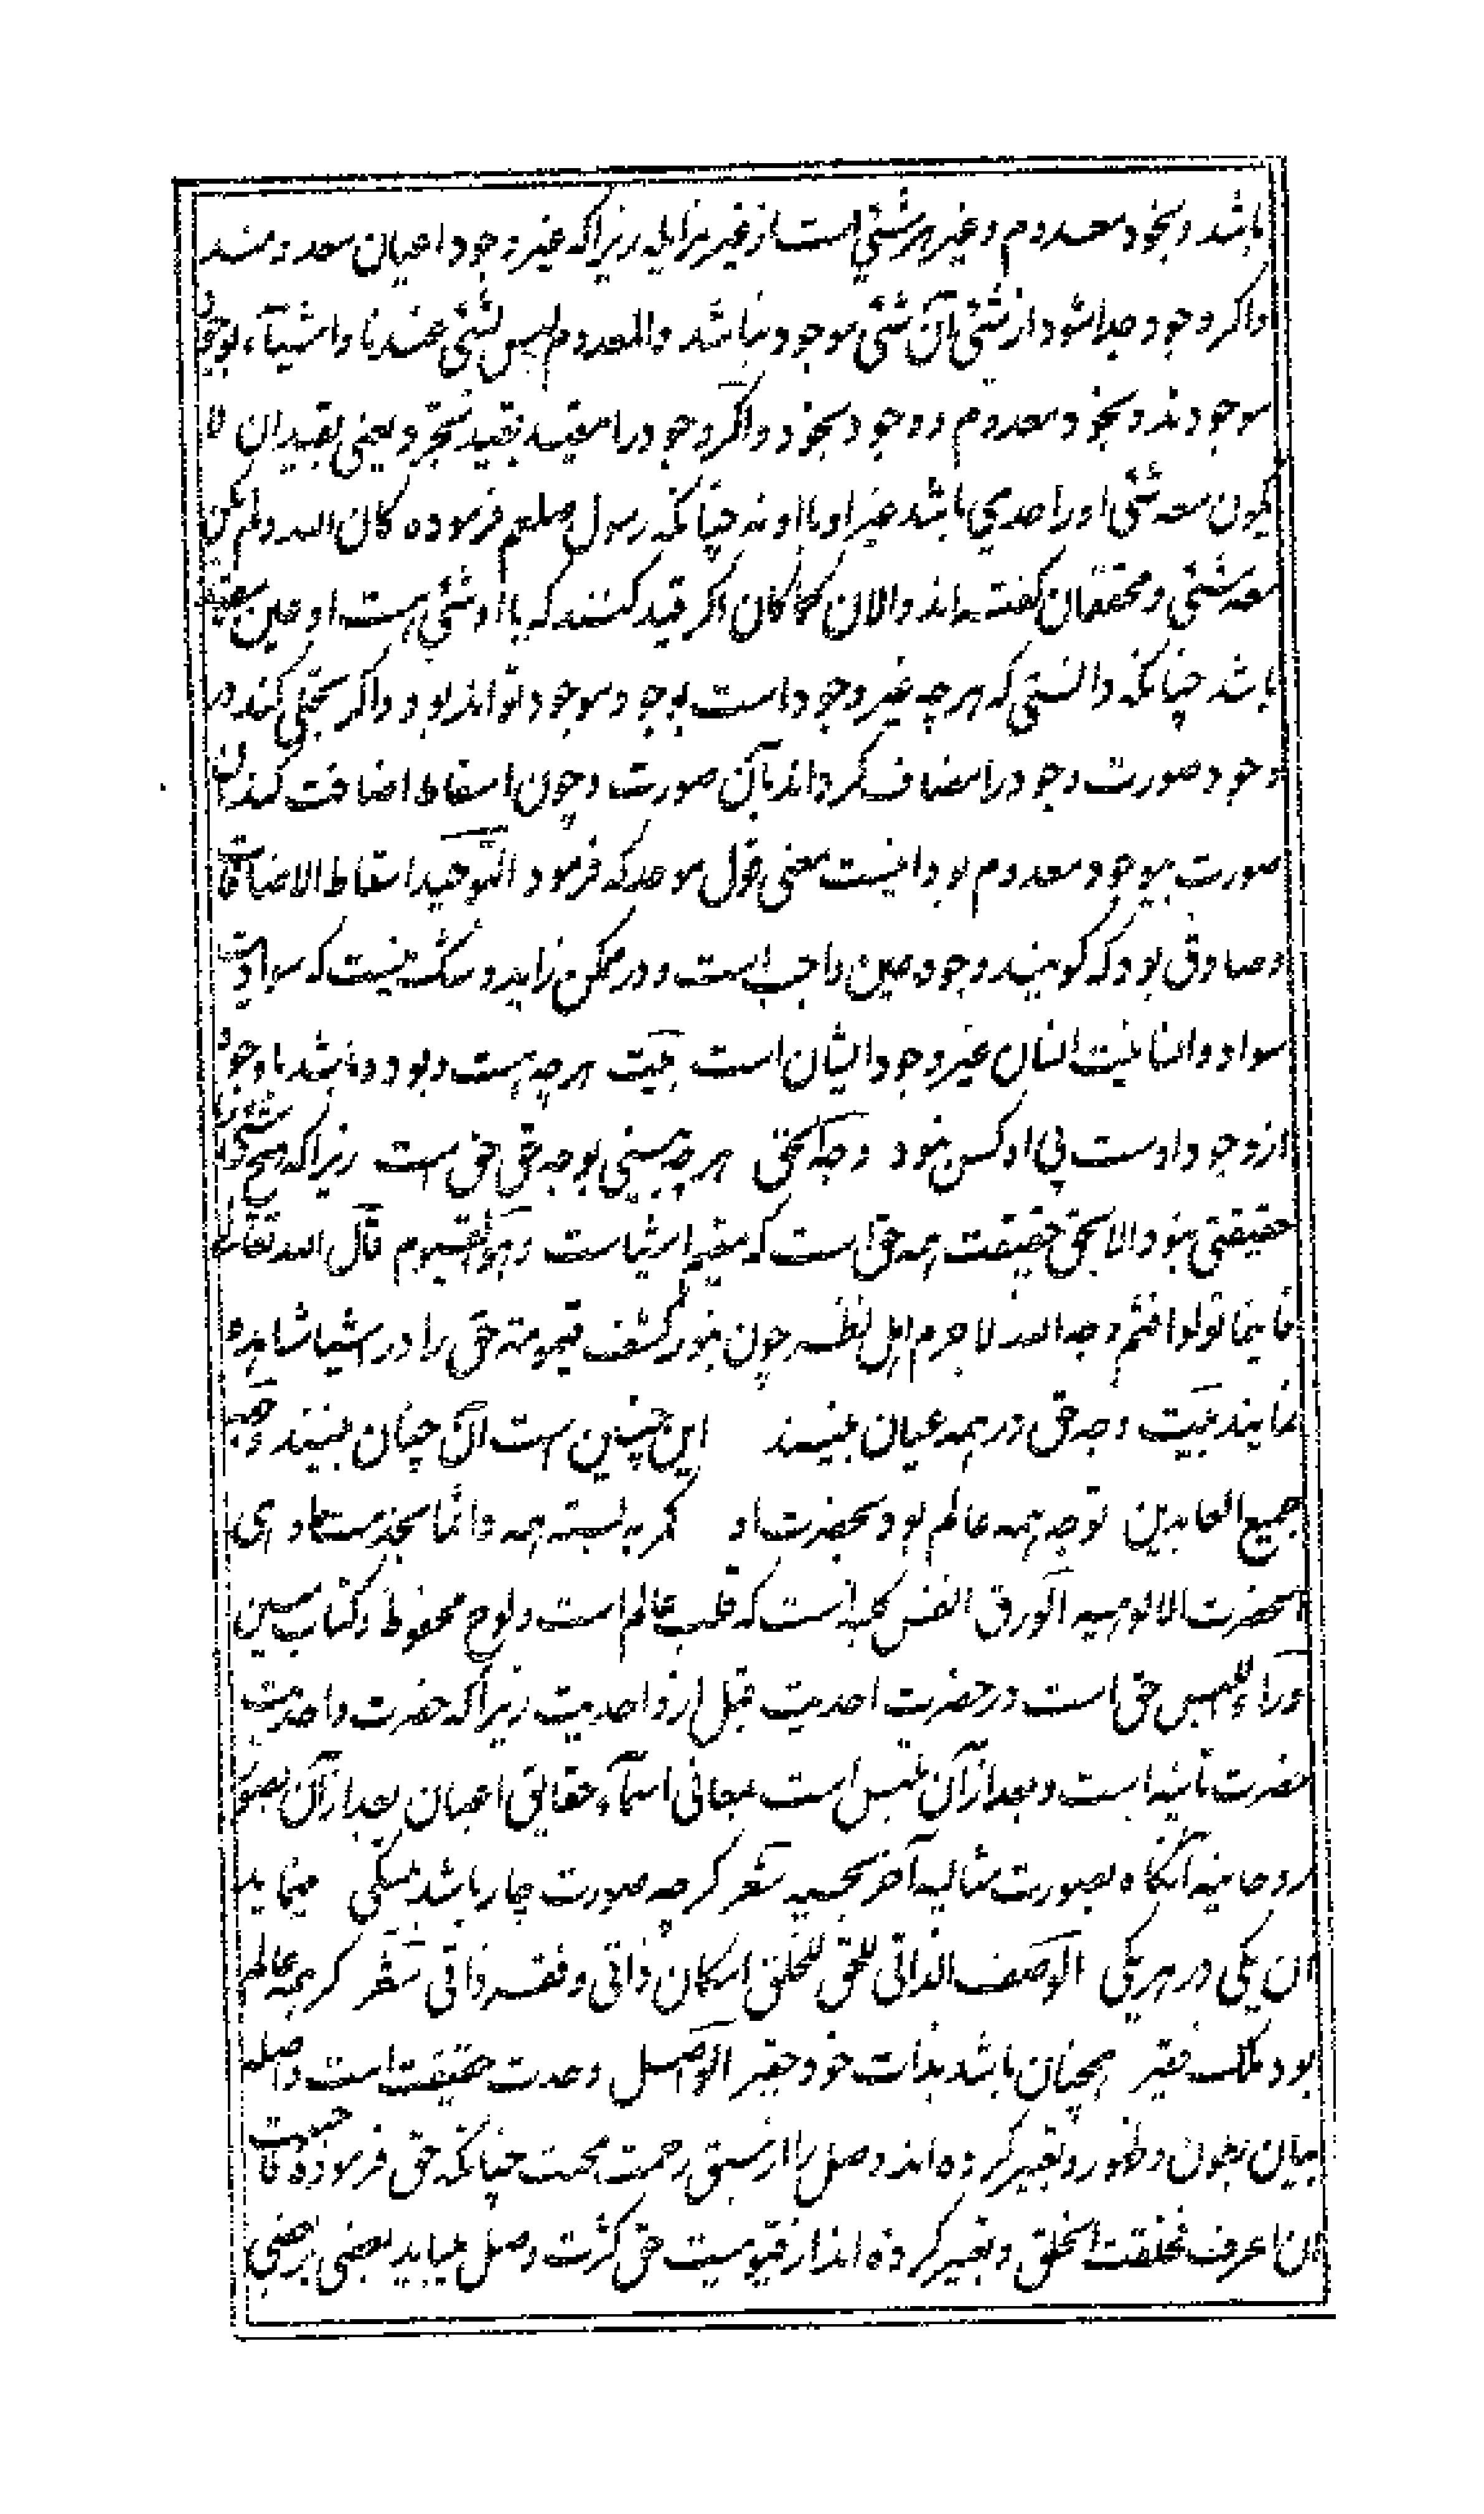 باشد و بخود معدوم و غیر هر شئی است از غیر مزایله زیرا که غیر وجود اعیان معدومند
و اگر وجود جدا شود از شئی آن شئی موجود نباشد و المعدوم لیس بشئی عندنا و اشیآء بوجود
موجودند و بخود معدوم و وجود بخود و اگر وجود را مقید بقید تجرد یعنی بقید ان لا
یکون معه شئی او را احدی باشد غیر او با او نه چنانکه رسول صلعم فرموده کان الله و لم یکن
معه شئی و محققان گفته اند و الان کما کان اگر قید کنند که با او شئی هست او عین مقید
باشد چنانکه دانستی که هر چه غیر وجود است بوجود موجود تواند بود و اگر تجلی کند در
وجود صورت وجود را مضاف گرداند بآن صورت و چون اسقاط اضافت کند آن
صورت بیوجود معدوم بود اینست معنی قول موحد که فرمود التوحید اسقاط الاضافات
و صادق بود که گویند وجود عین واجب است و در ممکن زاید و شک نیست که سوادیت
سواد و انسانیت انسان غیر وجود ایشان است بیت هر چه هست و بود و باشد با وجود
از وجود اوست بی او کس نبود وجه الحق هر چه بینی بوجه حق حق است زیرا که هیچ شئی را
حقیقتی نبود الا بحق حقیقت همه حق است که مقیم اشیاست و هو القیوم قال الله تعالی
فاینما تولوا فثم وجه الله لا جرم اهل نظر چون بنور کشف قیومیته حق را در اشیا مشاهده
نمایند بیت وجه حق در همه عیان بینند این چنین است آن چنان بینند وجهة
جمیع العابدین توجه همه عالم بود بحضرت او کمر به بسته همه دائما بخدمت او ای
بحضرت الالوهیه الورق النفس کلیه است که قلب عالم است و لوح محفوظ و کتاب مبین
ورآء اللبس حق است در حضرت احدیت قبل از واحدیت زیرا که حضرت واحدیت
حضرت ثانیه است و بعد از آن ملتبس است بمعانی اسمآء و حقایق اعیان بعد از آن بصور
روحانیه آنگاه بصورت مثالیه آخر بحسیه شعر گر چه صورت چار باشد نیکی مینماید
آن یکی در هر یکی الوصف الذاتی للحق للخلق امکان ذاتی و فقر ذاتی شعر گر همه عالم
بود ملک فقیر همچنان باشد بذات خود حقیر الواصل وحدت حقیقت است واصله
بیان بطون و ظهور و تعبیر کرده اند وصل را از سبق رحمت محبت چنانکه حق فرموده فاحببت
ان اعرف فخلقت الخلق و تعبیر کرده اند از قیومیت حق کثرت وصل میابد بعضی ببعضی